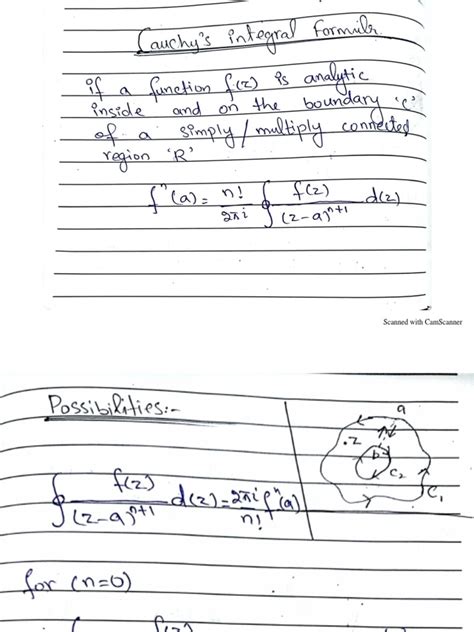 Cauchy's integral Formula
if a function f(z) is analytic
inside and on the boundary 'c'
of a simply/multiply connected
region 'R'
fⁿ(a) = n!/2πi ∮ f(z)/(z-a)ⁿ⁺¹ d(z)
Scanned with CamScanner
Possibilities:-
a
.z
b
C₂
C₁
∮ f(z)/(z-a)ⁿ⁺¹ d(z) = 2πi/n! fⁿ(a)
for (n=0)
f(z)